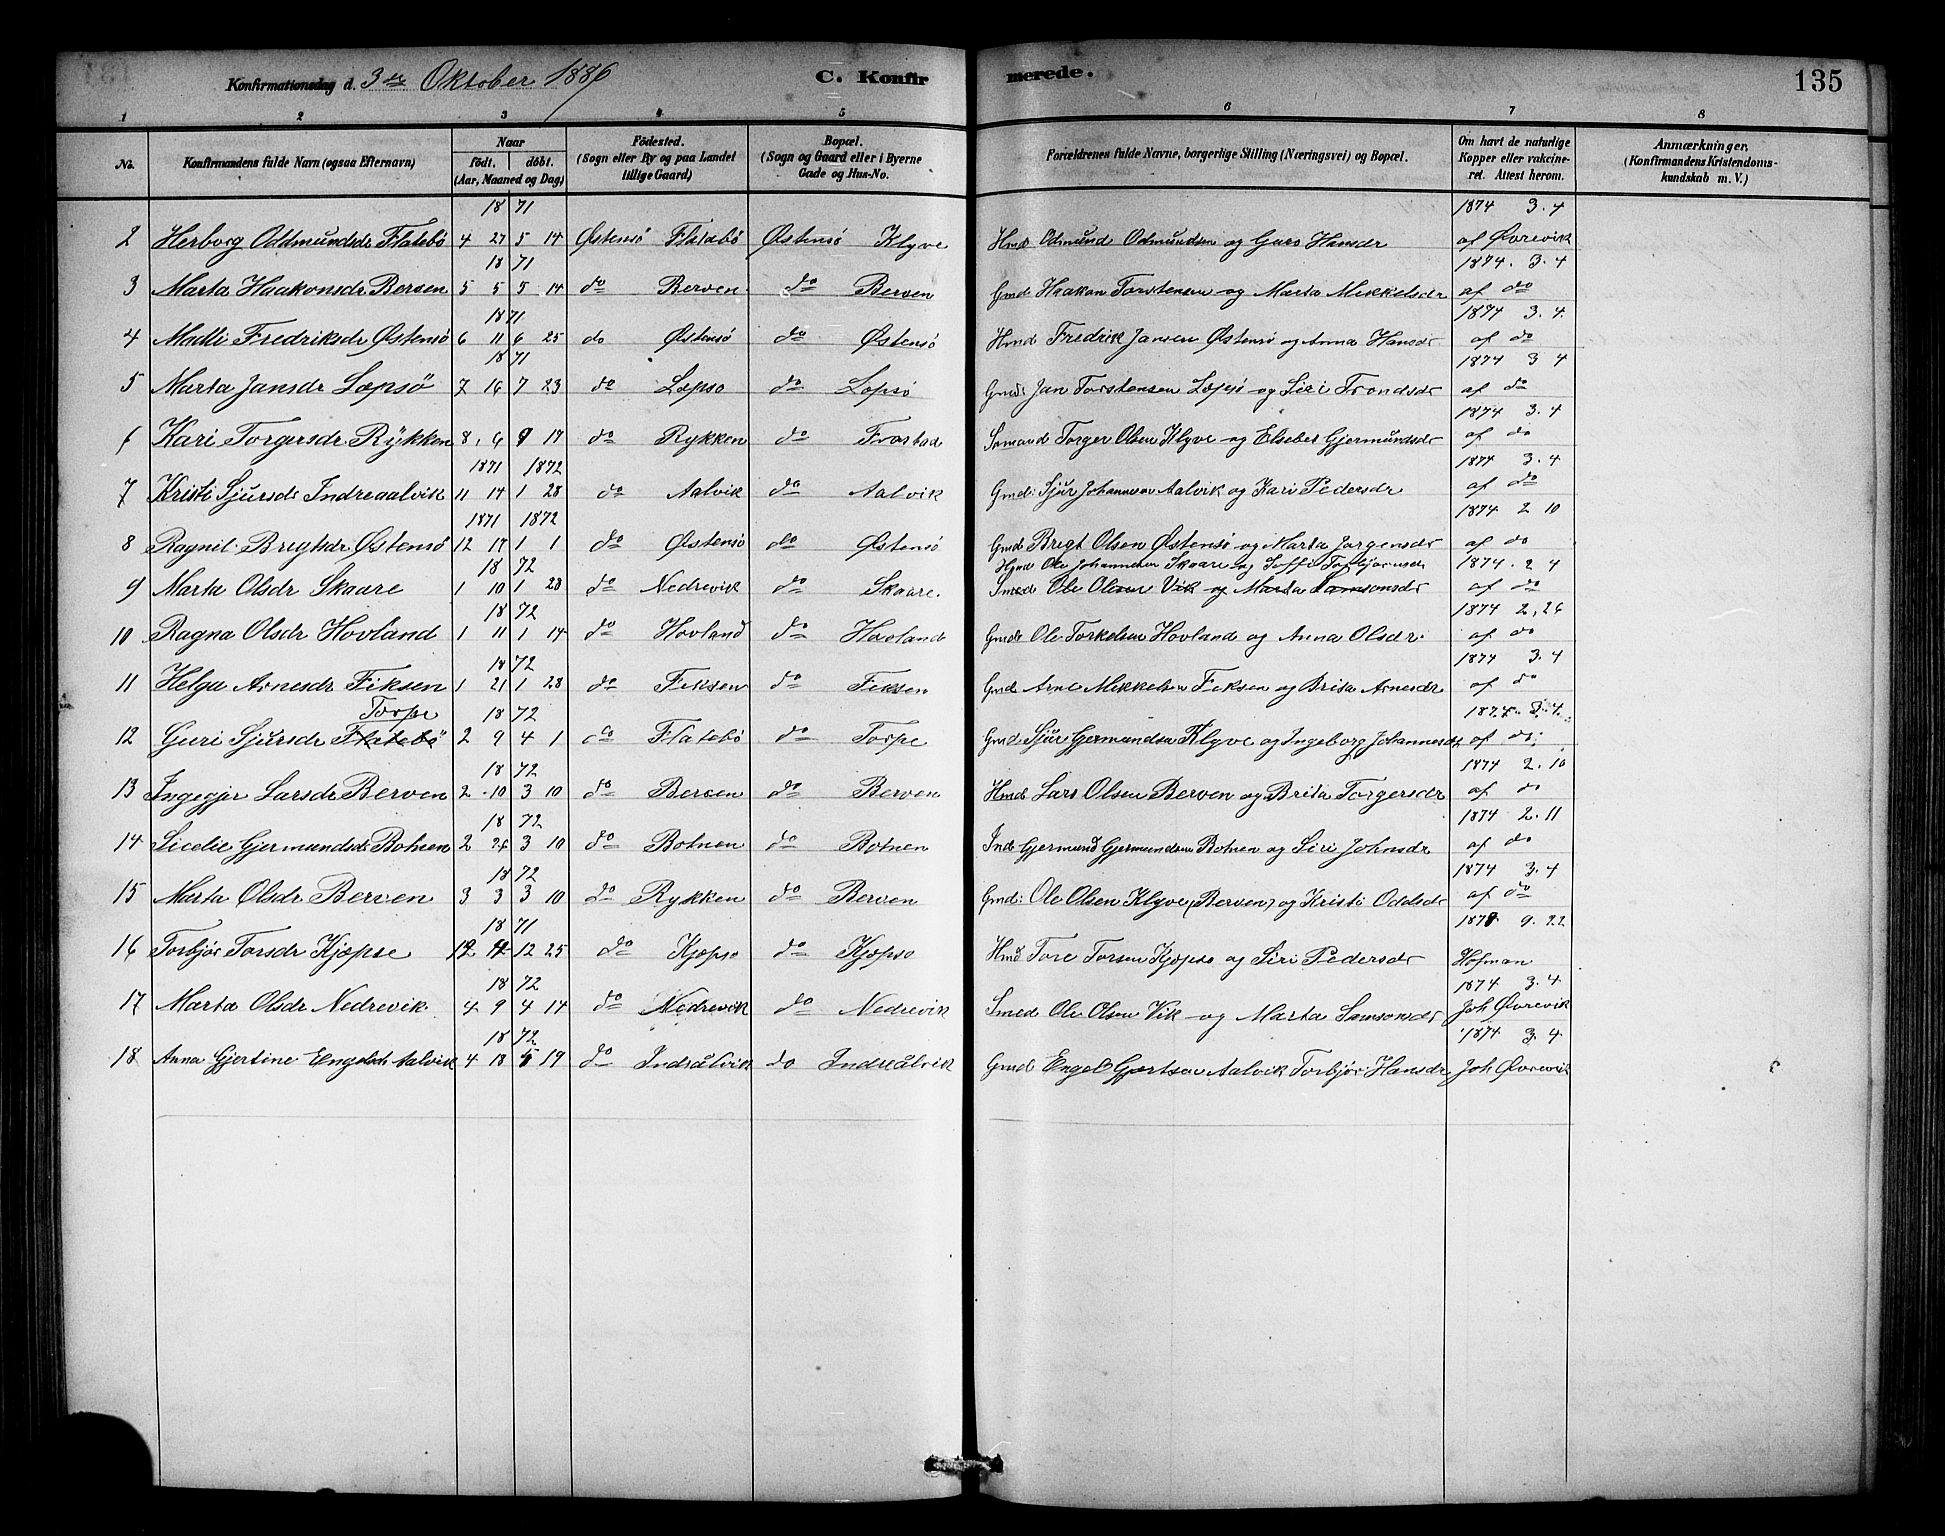 Konfirmationsdag d. 3die Oktober 1886 C. Konfirmerede. 135
1 2 3 4 5 6 7 8
No. Konfirmandens fulde Navn (ogsaa Efternavn) Naar födt. döbt. (Aar, Maaned og Dag) Födested. (Sogn eller By og paa Landet tillige Gaard.) Bopæl. (Sogn og Gaard eller i Byerne Gade og Hus-No. Forældrenes fulde Navne, borgerlige Stilling (Næringsvei) og Bopæl. Om havt de naturlige Kopper eller vakcineret. Attest herom. Anmærkninger, (Konfirmandens Kristendomskundskab m. V.)
18 71 1874 3.4
2 Herborg Oddmundsdr Flatebö 4 27 5 14 Østensö Flatabö Østensö Klyve Hmd Odmund Odmundsen og Guro Hansdr af Øvrevik
18 71 1874. 3.4
3 Marta Haakonsdr Berven 5 5 5 14 do Berven do Berven Gmd Haakon Torstensen og Marta Mikkelsdr af do
18 71 1874 3.4.
4 Madli Fredriksdr Østensö 6 11 6 25 do Østensö do Østensö Hmd Fredrik Jansen Østensö og Anna Hansdr af do
18 71 1874 3 4
5 Marta Jansdr Læpsö 7 16 7 23 do Læpso do Lopsö Gmd: Jan Torstensen Læpsö og Siri Trondsdr af do
1874 3.4
6 Kari Torgersdr Rykken 8, 6 9 17 do Rykken do Frostad Torger Olsen Klyve og Elsebet Gjermundsdr af do
1871 1872 1874 3.4
7 Kristi Sjursdr Indreaalvik 11 14 1 28 do Aalvik do Aalvik Gmd: Sjur Johannesen Aalvik og Kari Pedersdr af do
1871 1872 1874 2 10
8 Ragnil: Brigtsdr Østensö 12 17 1 1 do Østensö do Østensö Gmd Brigt Olsen Østensö og Marta Jørgensdr af do
18 72 Hmd Ole Johannesen Skaare og Soffi Torbjörnsdr 1874. 2 4
9 Marta Olsdr Skaare 1 10 1 28 do Nedrevik do Skaare. Smed Ole Olsen Vik og Marta Samsonsdr af do
18 72 1874 2,26
10 Ragna Olsdr Hovland 1 11 1 14 do Hovland do Hovland Gmd: Ole Torkelsen Hovland og Anna Olsdr. af do
18 72 1874 3.4
11 Helga Arnesdr Fiksen 1 21 1 28 do Fiksen do Fiksen Gmd: Arne Mikkelsen Fiksen og Brita Arnesdr af do
Torpe 18 72 1874. 3.4.
12 Guri Sjursdr Flatebö 2 9 4 1 do Flatebö do Torpe Gmd. Sjur Gjermundsen Klyve og Ingeborg Johannesdr af do:
18 72 1874 2.10
13 Ingegjer Larsdr Berven 2 10 3 10 do Berven do Berven Hmd: Lars Olsen Berven og Brita Torgersdr af do
18 72 1874 2.11
14 Sicelie Gjermundsdr Botnen 2 26 3 10 do Botnen do Botnen Ind: Gjermund Gjermundsen Botnen og Siri Johnsdr af do
18 72 1874 3.4
15 Marta Olsdr Berven 3 3 3 10 do Rykken do Berven Gmd: Ole Olsen Klyve (Berven) og Kristi Oddsdr af do
18 71 1878 9.22
16 Torbjör Torsdr Kjöpse 12 4 12 25 do Kjöpso do Kjöpso Hmd Tore Torsen Kjöpso og Siri Pedersdr Hofman
18 72 1874 3.4
17 Marta Olsdr Nedrevik. 4 9 4 14 do Nedrevik do Nedrevik Smed Ole Olsen Vik og Marta Samsonsdr Joh Øvrevik
18 72 1874 3.4
18 Anna Gjertine Engelsdr Aalvik 4 18 5 19 do Indreålvik do Indreålvik Gmd: Engel Gjertsen Aalvik Torbjör Hansdr Joh Øvrevik